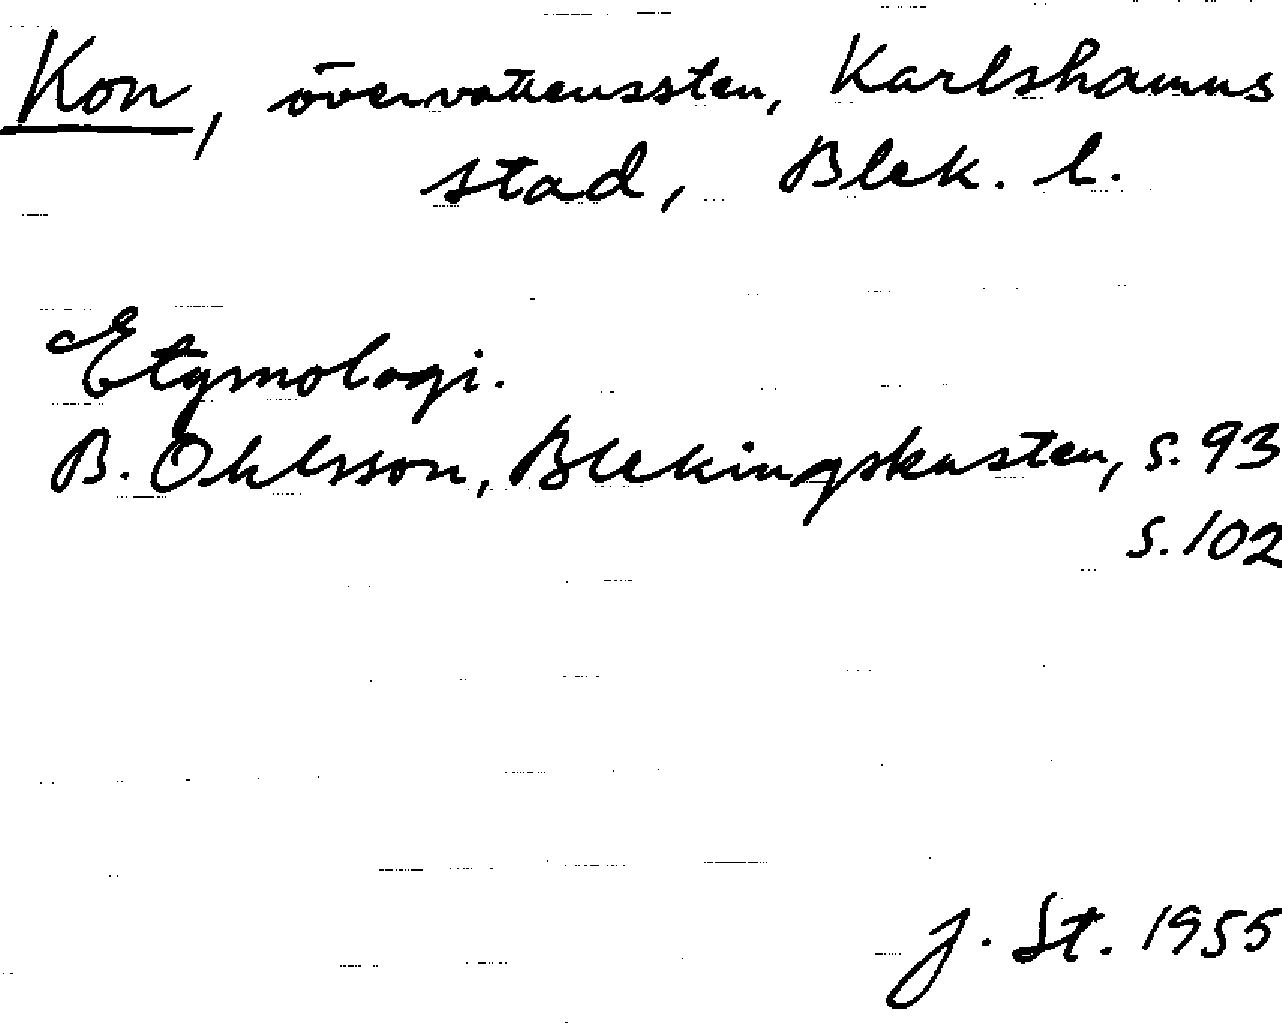 Kon, övervattenssten, Karlshamns
stad, Blek. l.
Etymologi.
B. Ohlsson, Blekingskusten, s. 93
s. 102
J. St. 1955